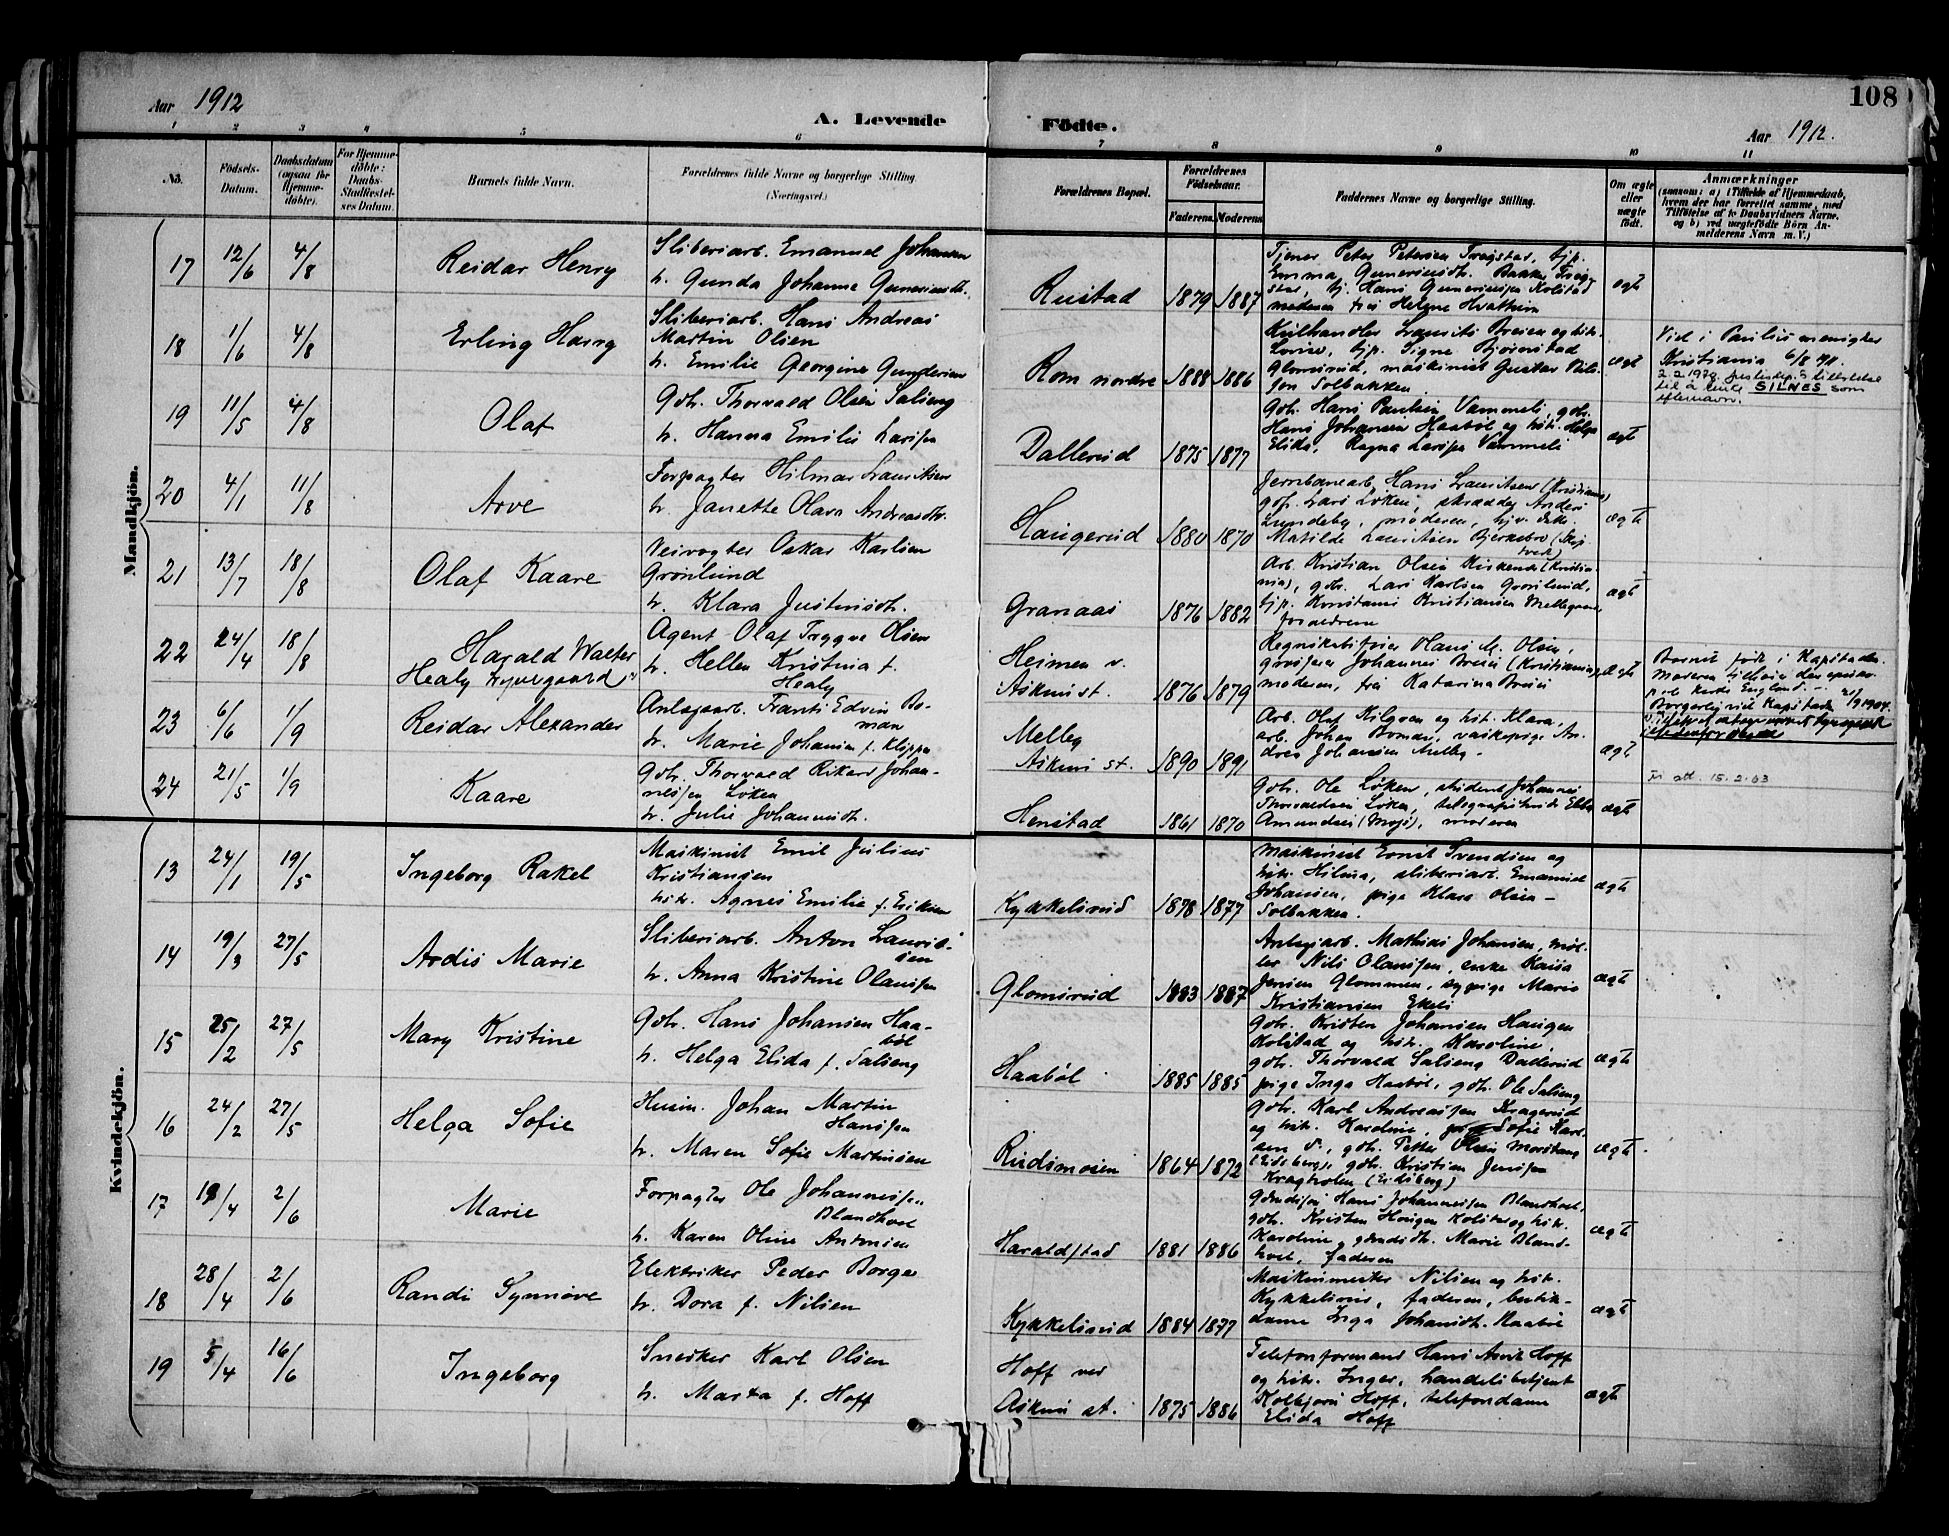 Aar 1912
A. Levende
Födte.
Aar 1912.
108
1 2 3 4 5 6 7 8 9 10 11
No.
Födsels-
Datum.
Daabsdatum
(ogsaa for
Hjemme-
døbte).
For Hjemme-
døbte:
Daabs-
Stadfæstel-
ses Datum.
Barnets fulde Navn.
Forældrenes fulde Navne og borgerlige Stilling.
(Næringsvei.)
Forældrenes Bopæl.
Forældrenes
Födselsaar.
Faderens. Moderens.
Faddernes Navne og borgerlige Stilling.
Om ægte
eller
uægte
født.
Anmærkninger
(saasom: a) i Tilfælde af Hjemmedaab,
hvem der har forrettet samme, med
Tilföielse af to Daabsvidners Navne.
og b) ved uægtefödte Börn An-
melderens Navn m. V.)
Mandkjön.
17 12/6 4/8 Reidar Henry
Sliberiarb. Emanuel Johansen
h. Gunda Johanne Guneriusdt.
Rustad 1879 1887
Tjener Peter Petersen Trøgstad, tjp.
Emma Guneriusdt. Bakke Trøg-
stad, tj. Hans Gunerius Kolstad
moderen frøi Helene Hvatheim
ægt
18 1/6 4/8 Erling Harry
Sliberiarb. Hans Andreas
Martin Olsen
h. Emilie Georgine Gundersen
Rom nordre 1888 1886
Kulhandler Laurits Breien og hst.
Lovise, tjp. Signe Bjørnstad
Glomsrud, maskinist Gustav
Solbakken
ægt
Vied i Paulus menighet
Kristiania 6/8 40.
2.2.1972 justisdep. tillatelse
til å bruke SILNES som
efternavn.
19 11/5 4/8 Olaf
Gdr. Thorvald Olsen Salseng
h. Hanna Emilie Larsen
Dallerud 1875 1877
Gdr. Hans Paulsen Vammeli, gdr.
Hans Johansen Haabøl og hst. Helga
Elida, Ragna Larsen Vammeli
ægt
20 4/1 11/8 Arve
Forpagter Hilmar Lauritsen
h. Janette Olava Andreasdt.
Haugerud 1880 1870
Jernbanearb. Hans Lauritsen (Kristiania)
gdr. Lars Løken, skrædder Anders
Lundeby, moderen,
Matilde Lauritsen Bjerkebro
ægte
21 13/7 18/8 Olaf Kaare
Veivogter Oskar Karlsen
Grønlund
h. Klara Justinsdt.
Granaas 1876 1882
Arb. Kristian Olsen (Kristia-
nia), gdr. Lars Karlsen Grønlund,
tjp. Konstanse Kristiansen Mellegaard,
forældrene
ægt
22 24/4 18/8 Harald Walter
Healy Nygaard
Agent Olaf Trygve Olsen
h. Hellen Kristina f.
Healy
Heimen v.
Askim st. 1876 1879
Hans M. Olsen,
grosserer Johannes Breien (Kristiania),
moderen, frøi Katarina Breien
ægte
Barnet født i Kapstaden.
Moderen tilhører den episco-
pale kirke England. -
Borgerlig viet Kapstaden 21/9 1904.
23 6/6 1/9 Reidar Alexander
Anlægsarb. Frants Edvin Bo-
man
h. Marie Johansen f. Klippen
Melleg
Askim st. 1890 1891
Arb. Olaf Kilgren og hst. Klara,
arb. Johan Boman, vaskepige An-
drea Johansen
ægt
24 21/5 1/9 Kaare
Gdr. Thorvald Rikard Johan-
nessen Løken
h. Julie Johannesdt.
Henstad 1861 1870
Gdr. Ole Løken, student Johannes
Thorvaldsen Løken, telegrafistinde Ebba
Amundsen (Moss), moderen
ægte
att. 15.2.63
Kvindekjön.
13 24/1 19/5 Ingeborg Rakel
Maskinist Emil Julius
Kristiansen
hst. Agnes Emilie f. Eriksen
Kykkelsrud 1878 1877
Maskinist Ernst Svendsen og
hst. Hilma, sliberiarb. Emanuel
Johansen, pige Klara Olsen -
Solbakken.
ægte
14 19/3 27/5 Ardis Marie
Sliberiarb. Anton Laurit-
sen
h. Anna Kristine Olausen
Glomsrud 1883 1887
Anlægsarb. Mathias Johansen, møl-
ler Nils Olaussen, enke Kaisa
Jensen Glommen, sypige Marie
Kristiansen Ekeli
ægt
15 25/2 27/5 Mary Kristine
Gdr. Hans Johansen Haa-
bøl
h. Helga Elida f. Salseng
Haabøl 1885 1885
Gdr. Kristen Johansen Haugen
Kolstad og hst. Karoline,
gdr. Thorvald Salseng Dallerud
pige Inga Haabøl, gdr. Ole Salseng
ægte
16 24/2 27/5 Helga Sofie
Husm. Johan Martin
Hansen
h. Maren Sofie Martinsen
Rudsmosen 1864 1872
Gdr. Karl Andreassen Kragerud
og hst. Karoline, Sofie Karl-
sen , gdr. Petter Olsen
(Eidsberg), gdr. Kristian Jensen
(Eidsberg)
ægt
17 19/4 2/6 Marie
Forpagter Ole Johannessen
Blandhoel
h. Karen Oline Antonsen
Haraldstad 1881 1886
Hans Johannessen Blandhoel,
gdr. Kristen Haugen Kolstad og hst.
Karoline, Marie Bland-
hoel, faderen
ægt
18 28/4 2/6 Randi Synnøve
Elektriker Peder Borge
h. Dora f. Nilsen
Kykkelsrud 1884 1877
Maskinmester Nilsen og hst.
Kykkelsrud, faderen, butik-
dame Inga Johansdt. Haabøl
ægt
19 5/4 16/6 Ingeborg
Snedker Karl Olsen
h. Marta f. Hoff
Hoff ved
Askim st. 1875 1886
Telefonformand Hans Hoff
og hst. Inger, handelsbetjent
Kolbjørn Hoff, telefondame
Elida Hoff
ægt